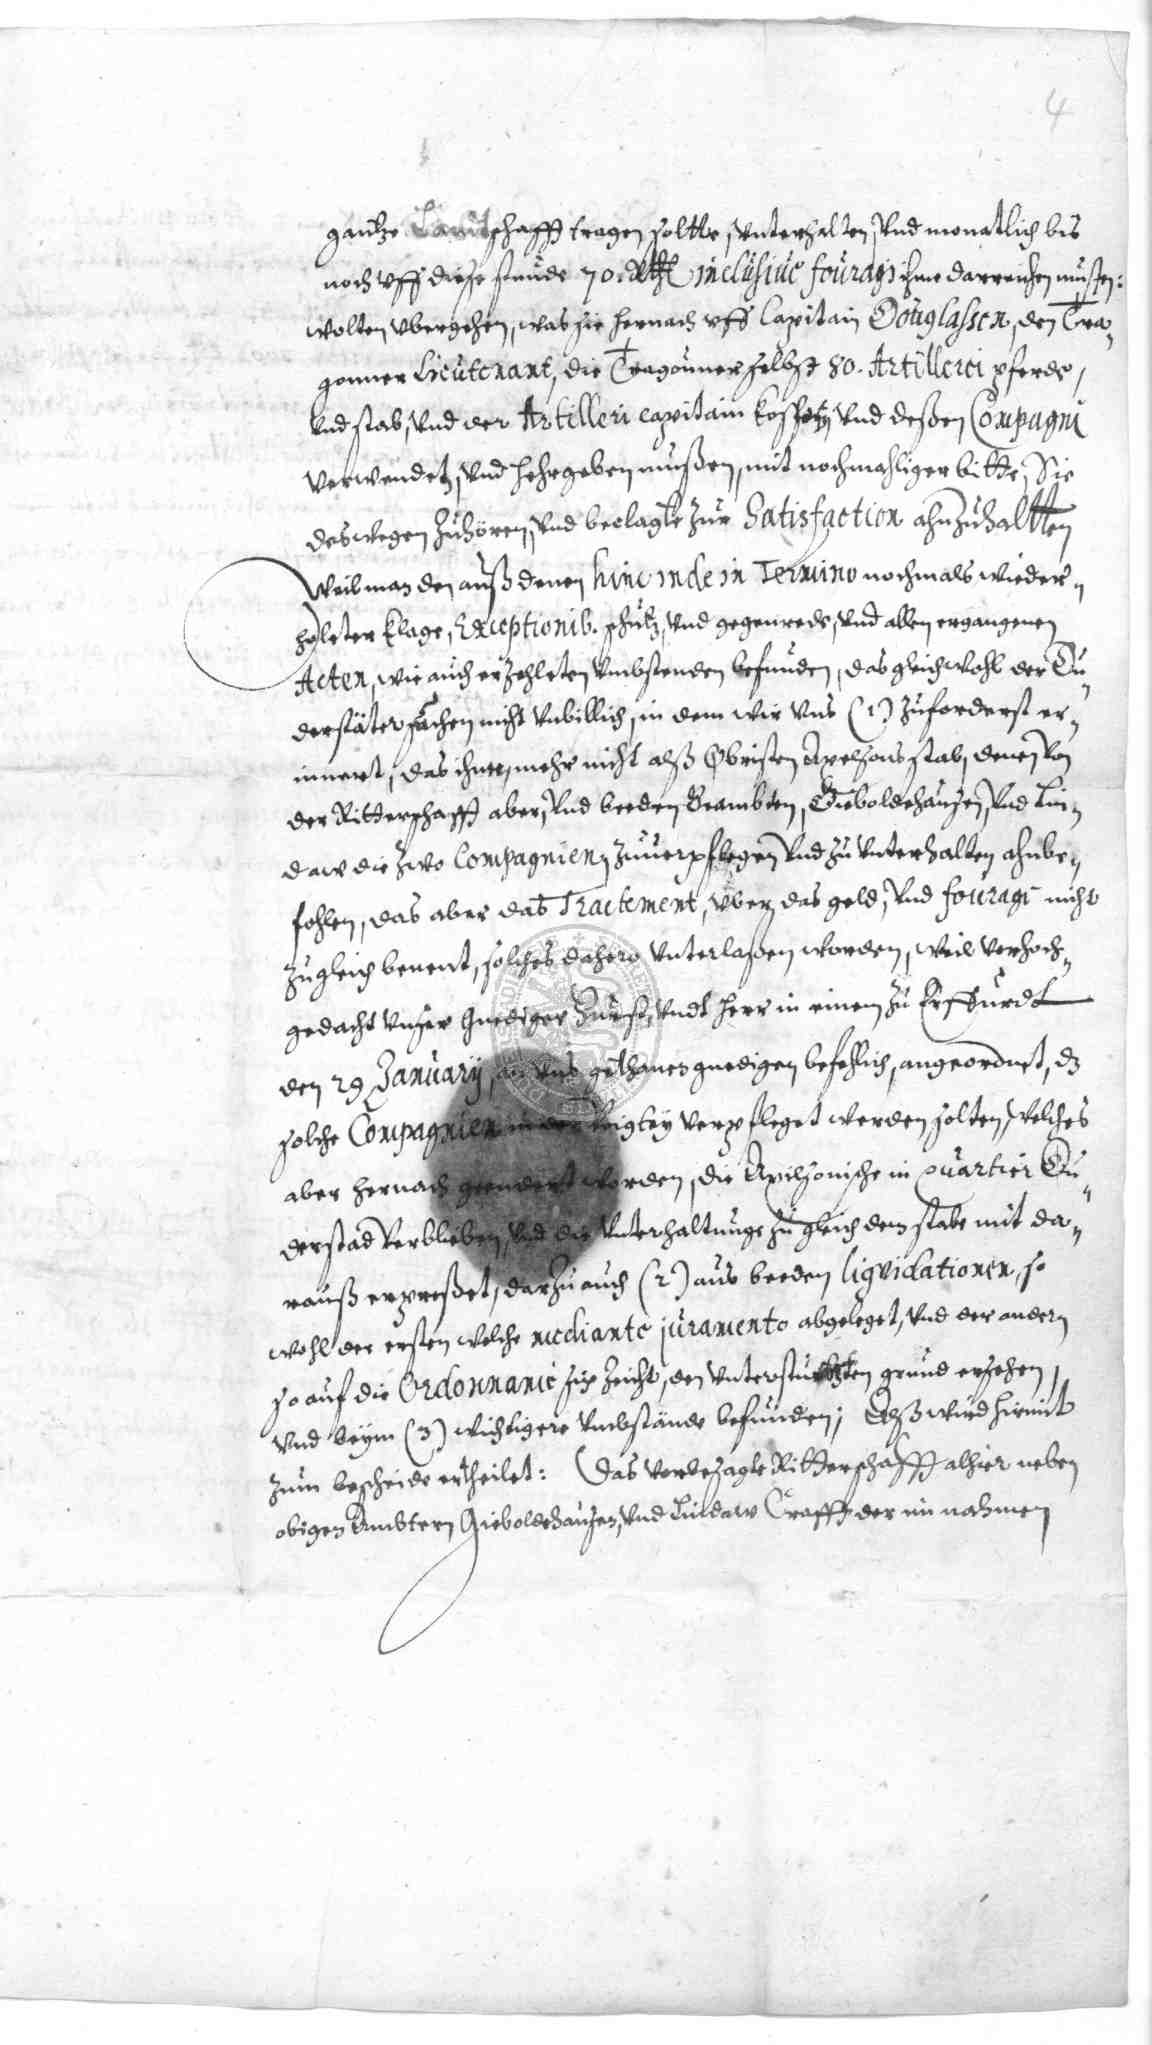 4
gantze Landtschafft tragen soltte, Vnterhalten, Vnd monatlich bis
noch vff diese stunde 70. Rthl inclusive fouragi ihme darreichen mußen:
wolten vbergehen, was sie hernach vff Capitain Douglassen, den Tra„
gonner Lieutenant, die Tragouner selbst 80. Artillerei pferde,
Vnd stab, Vnd der Artilleri capitain Vnd deßen Compagni
verwendet, Vnd hehrgeben mußen, mit nochmahliger bitte, Sie
deswegen zuhören, Vnd beclagte zur Satisfaction ahnzuhaltten
Weil man den auß denen hinc inde in Termino nochmals wieder„
holeter Klage, Exceptionib. schutz, Vnd gegenrede, Vnd allen ergangenen
Acten, wie auch erzehleten Vmbstenden befunden, das gleichwohl der Du„
derstäter sachen nicht Vnbillich, in dem wir Vns (1) zuforderst er„
innert, das ihnen mehr nicht alß Obristen Axelsons stab, denen Von
der Ritterschafft aber, Vnd beeden Beambten, Gieboldehausen, Vnd Lin„
daw die zwo Compagnien zuuerpflegen Vnd zu Vnterhalten ahnbe„
fohlen, das aber das Tractement, Vber das geld, Vnd fouragi nicht
zugleich benent, solches dahero Vnterlaßen worden, weil verhoch„
gedacht Vnser Gnediger Fürst, Vndt herr in einem zu Erffurdt
den 29 Januarij, an Vns gethanen gnedigen befehlich, angeordnet, dz
solche Compagnien in der Voigtey verpfleget werden solten, welches
aber hernach geendert worden, die Axilsonische in quartier Du„
derstad Verblieben, Vnd die Vnterhaltunge zugleich dem stabe mit da„
rauß erpreßet, darzu auch (2) aus beeden liqvidationen, so
wohl der ersten welche mediante juramento abgeleget, Vnd der andern
so auf die Ordonnance sich zeicht, den Vnterstutzten grund ersehen,
Vnd beym (3) wichtigere Vmbstände befunden; Alß wird hiemit
zum bescheide ertheilet: Das Vorbesagte Ritterschafft alhier neben
obigen Ambtern Gieboldehausen, Vnd Lindaw Crafft der im nahmen